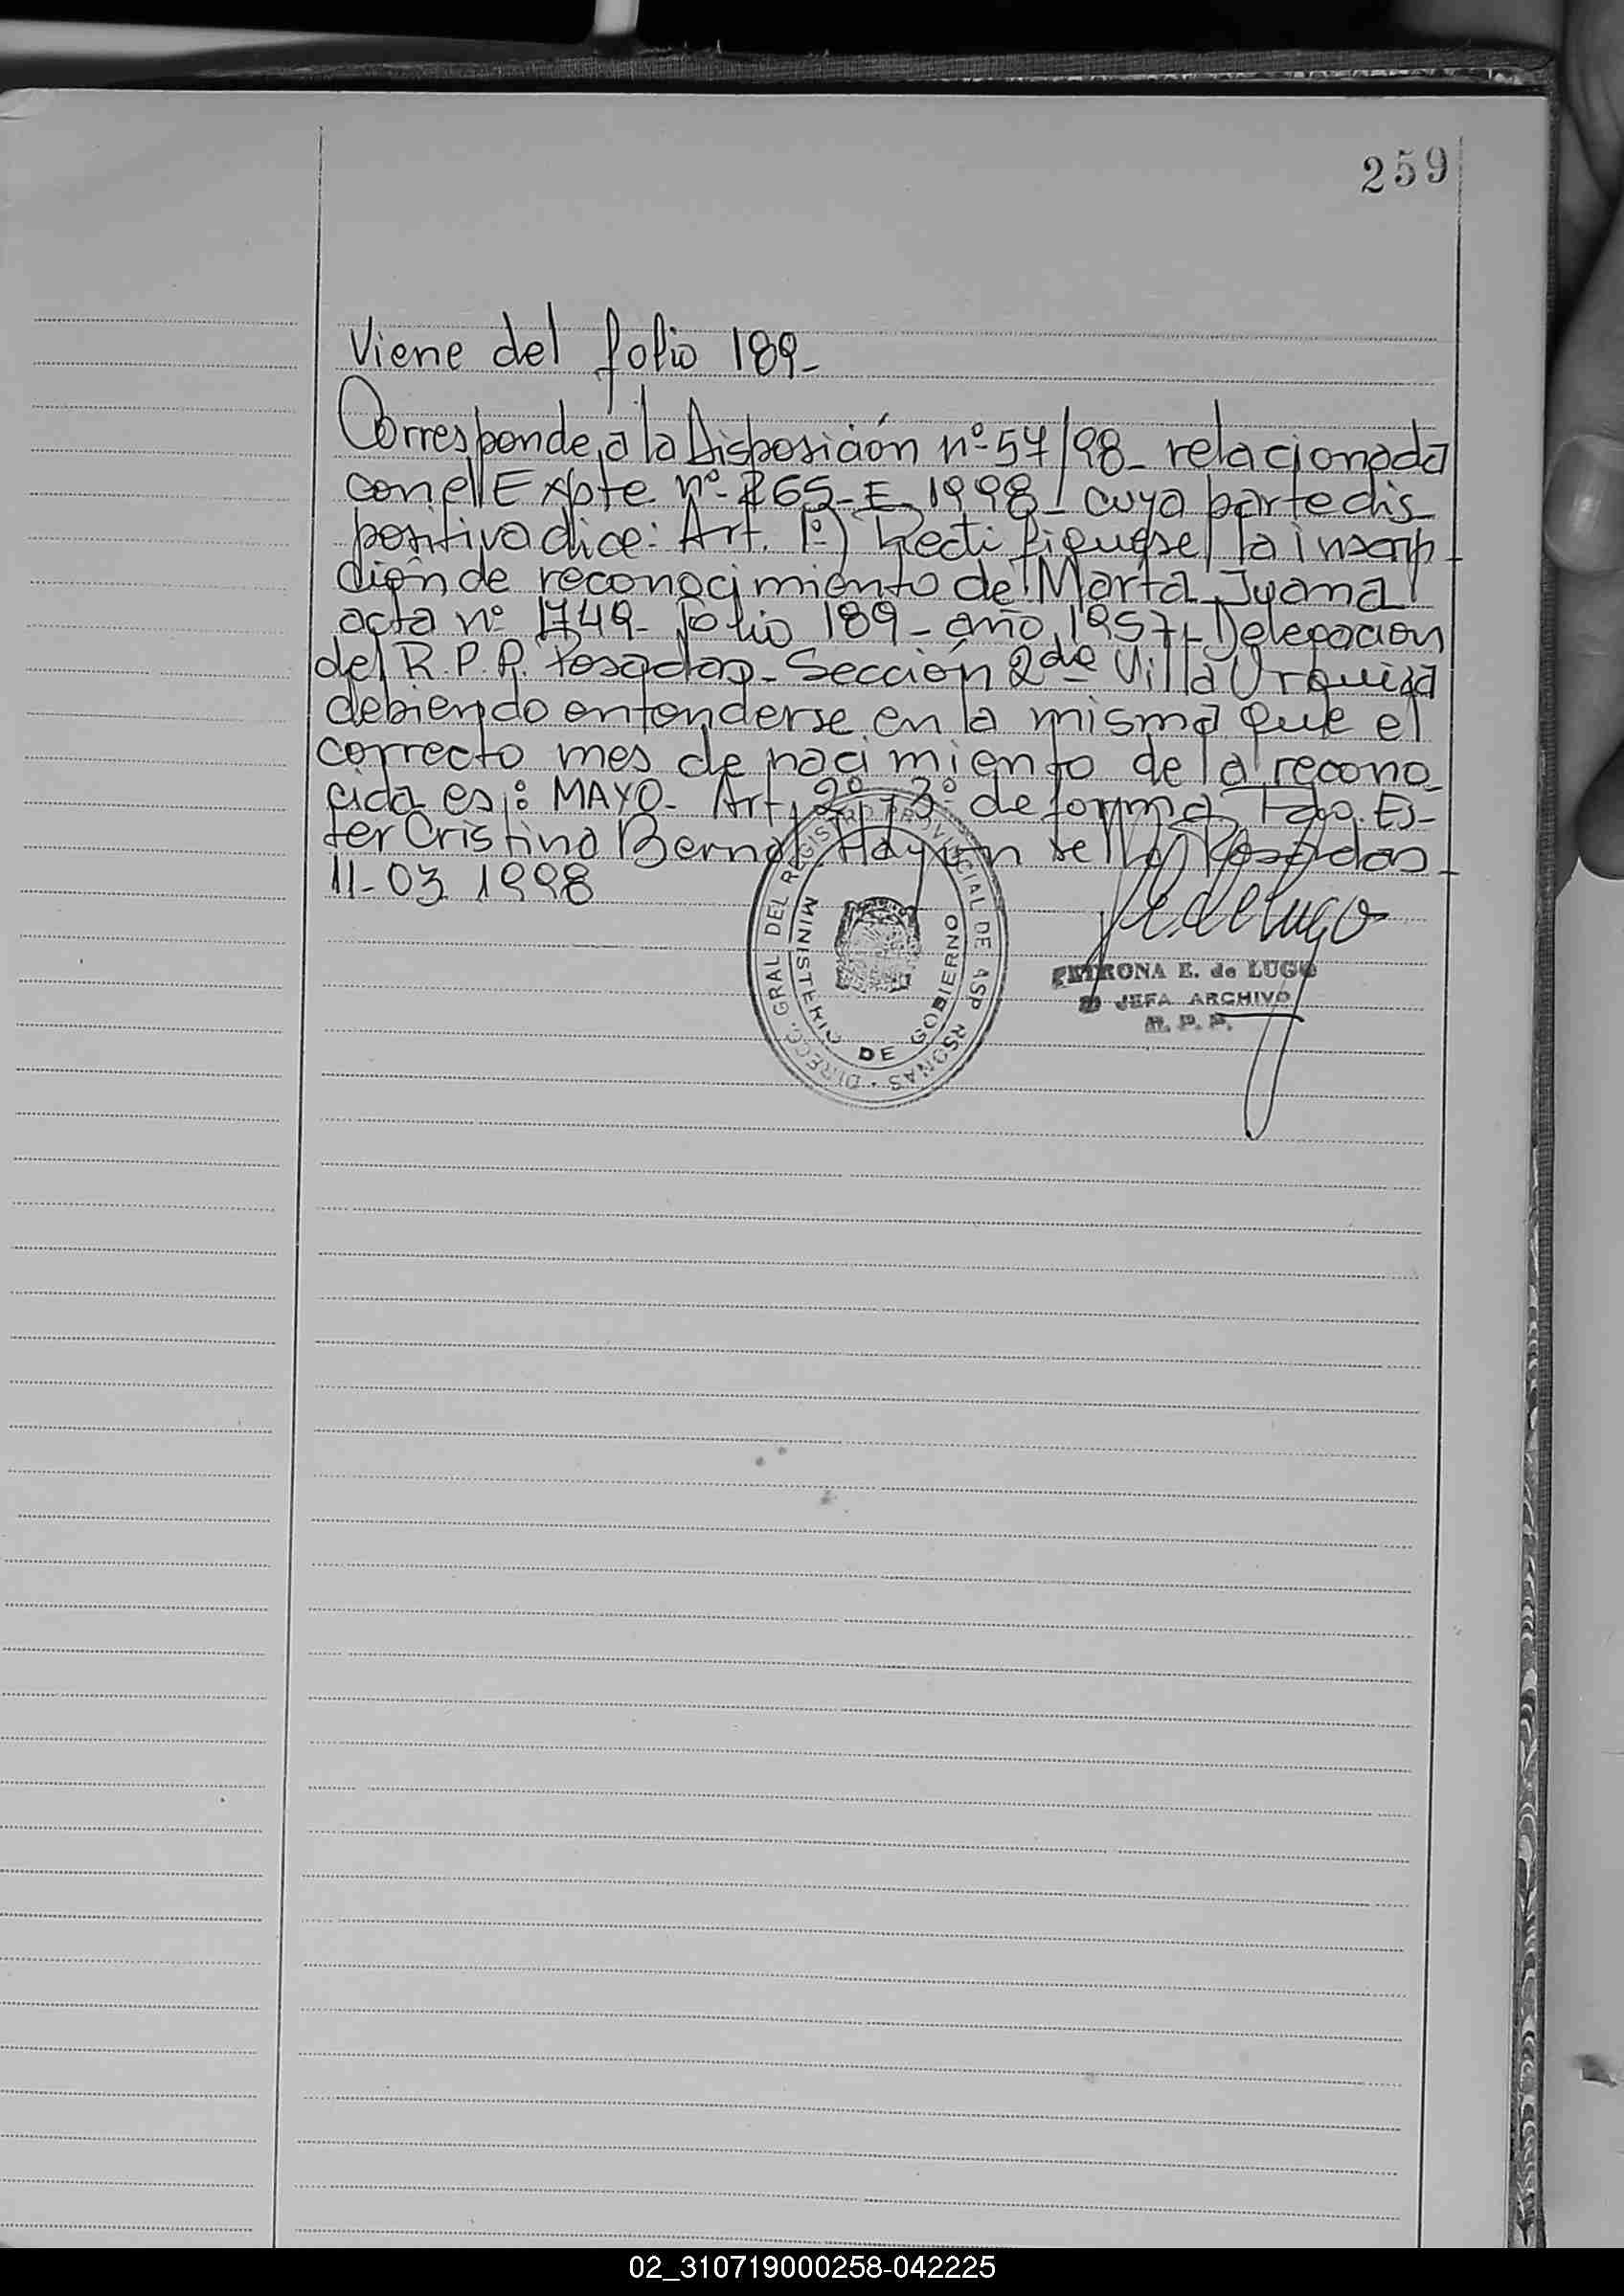 259
Viene del folio 189-
Corresponde a la Disposición nº 57/98- relacionada
con el Expte. nº 265-E-1998- cuya parte dis
positiva dice: Art. 1º) Rectifiquese la inscrip-
ción de reconocimiento de Marta Juana
acta nº 1749- folio 189- año 1957- Delegación
del R.P.P. Posadas- Sección 2da Villa Urquiza
debiendo entenderse en la misma que el
correcto mes de nacimiento de la recono
cida es: MAYO- Art. 2º y 3º de forma Fdo. Es-
ter Cristina Bernal Hay un sello Posadas-
11-03 1998
DIRECC. GRAL DEL REGISTRO PROVINCIAL DE ASP RSONAS
MINISTERIO DE GOBIERNO
PETRONA E. de LUGO
JEFA ARCHIVO
R. P. P.
02_310719000258-042225